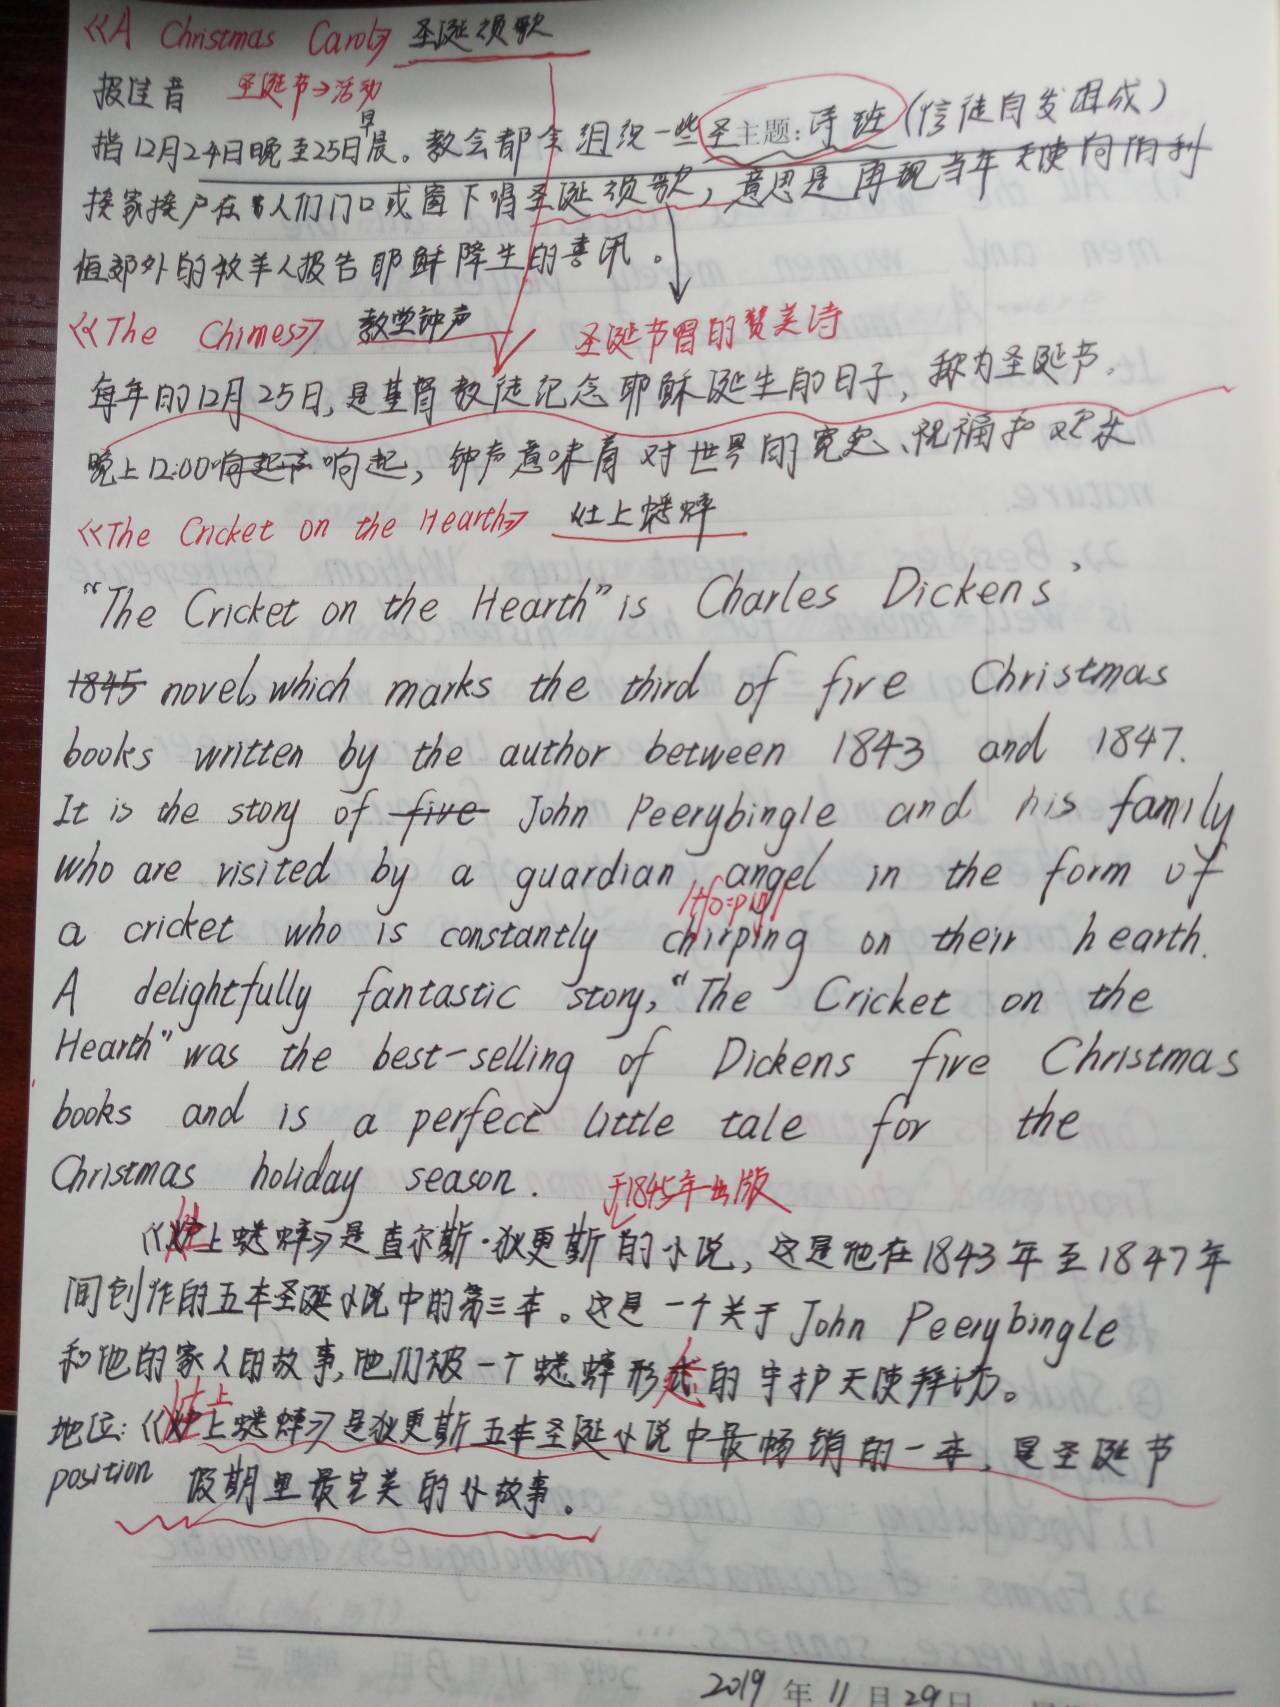 《A Christmas Carol》 圣诞颂歌
报佳音 圣诞节→活动
指12月24日晚至25日早晨。教会都会组织一些圣主题:诗班(信徒自发组成)
挨家挨户在人们门口或窗下唱圣诞颂歌,意思是再现当年天使向伯利
恒郊外的牧羊人报告耶稣降生的喜讯。
《The Chimes》 教堂钟声 圣诞节唱的赞美诗
每年的12月25日,是基督教徒纪念耶稣诞生的日子,称为圣诞节,
晚上12:00响起声响起,钟声意味着对世界的宽恕、祝福和欢庆
《The Cricket on the Hearth》 灶上蟋蟀
"The Cricket on the Hearth" is Charles Dickens'
1845 novel, which marks the third of five Christmas
books written by the author between 1843 and 1847.
It is the story of five John Peerybingle and his family
who are visited by a guardian angel in the form of
a cricket who is constantly chirping on their hearth.
A delightfully fantastic story, "The Cricket on the
Hearth" was the best-selling of Dickens five Christmas
books and is a perfect little tale for the
Christmas holiday season. 于1845年出版
《灶上蟋蟀》是查尔斯·狄更斯的小说,这是他在1843年至1847年
间创作的五本圣诞小说中的第三本。这是一个关于John Peerybingle
和他的家人的故事,他们被一个蟋蟀形态的守护天使拜访。
地位:《灶上蟋蟀》是狄更斯五本圣诞小说中最畅销的一本,是圣诞节
position 假期里最完美的小故事。
2019年11月29日